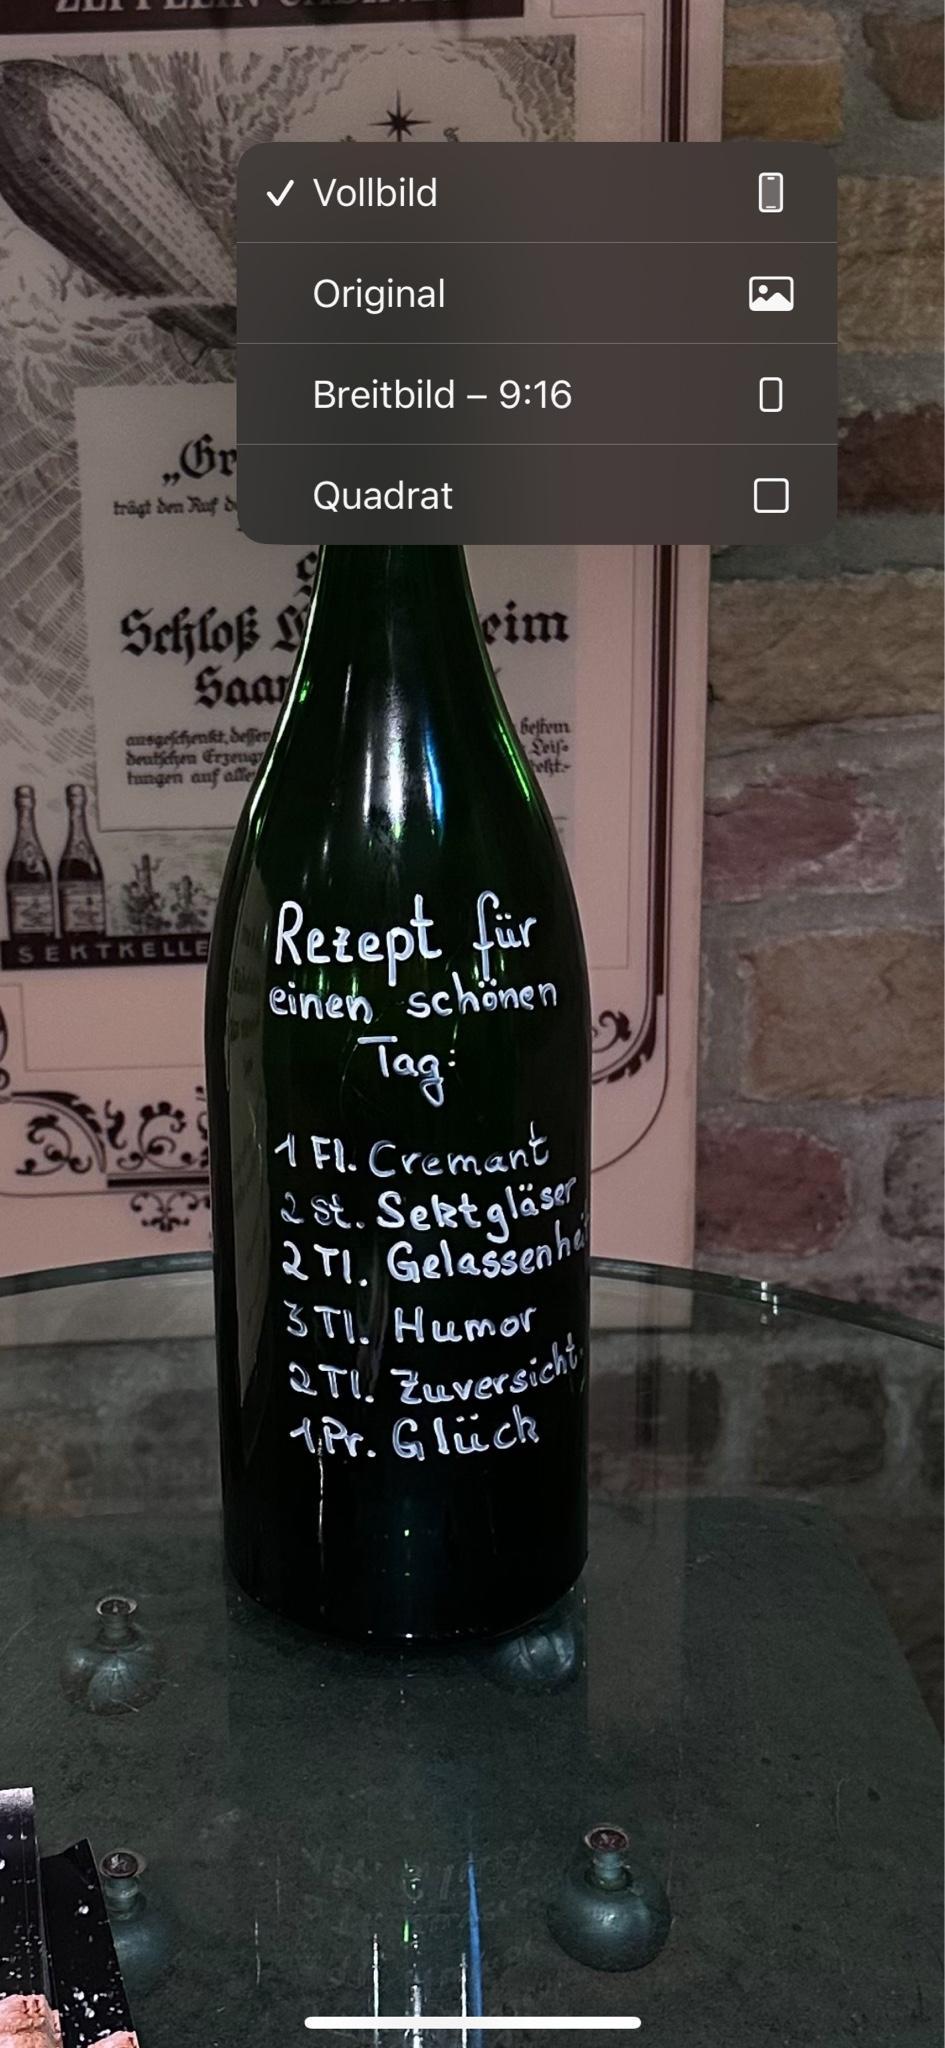 ZEPPELIN
✓ Vollbild
Original
Breitbild – 9:16
Quadrat
„Gr
trägt den Ruf
Schloß
eim
Saar
ausgeschenkt, dessen
bestem
deutschen Erzeug
Leis=
tungen auf
SEKTKELLE
Rezept für
einen schönen
Tag:
1 Fl. Cremant
2 St. Sektgläser
2 Tl. Gelassenhei
3 Tl. Humor
2 Tl. Zuversicht.
1 Pr. Glück